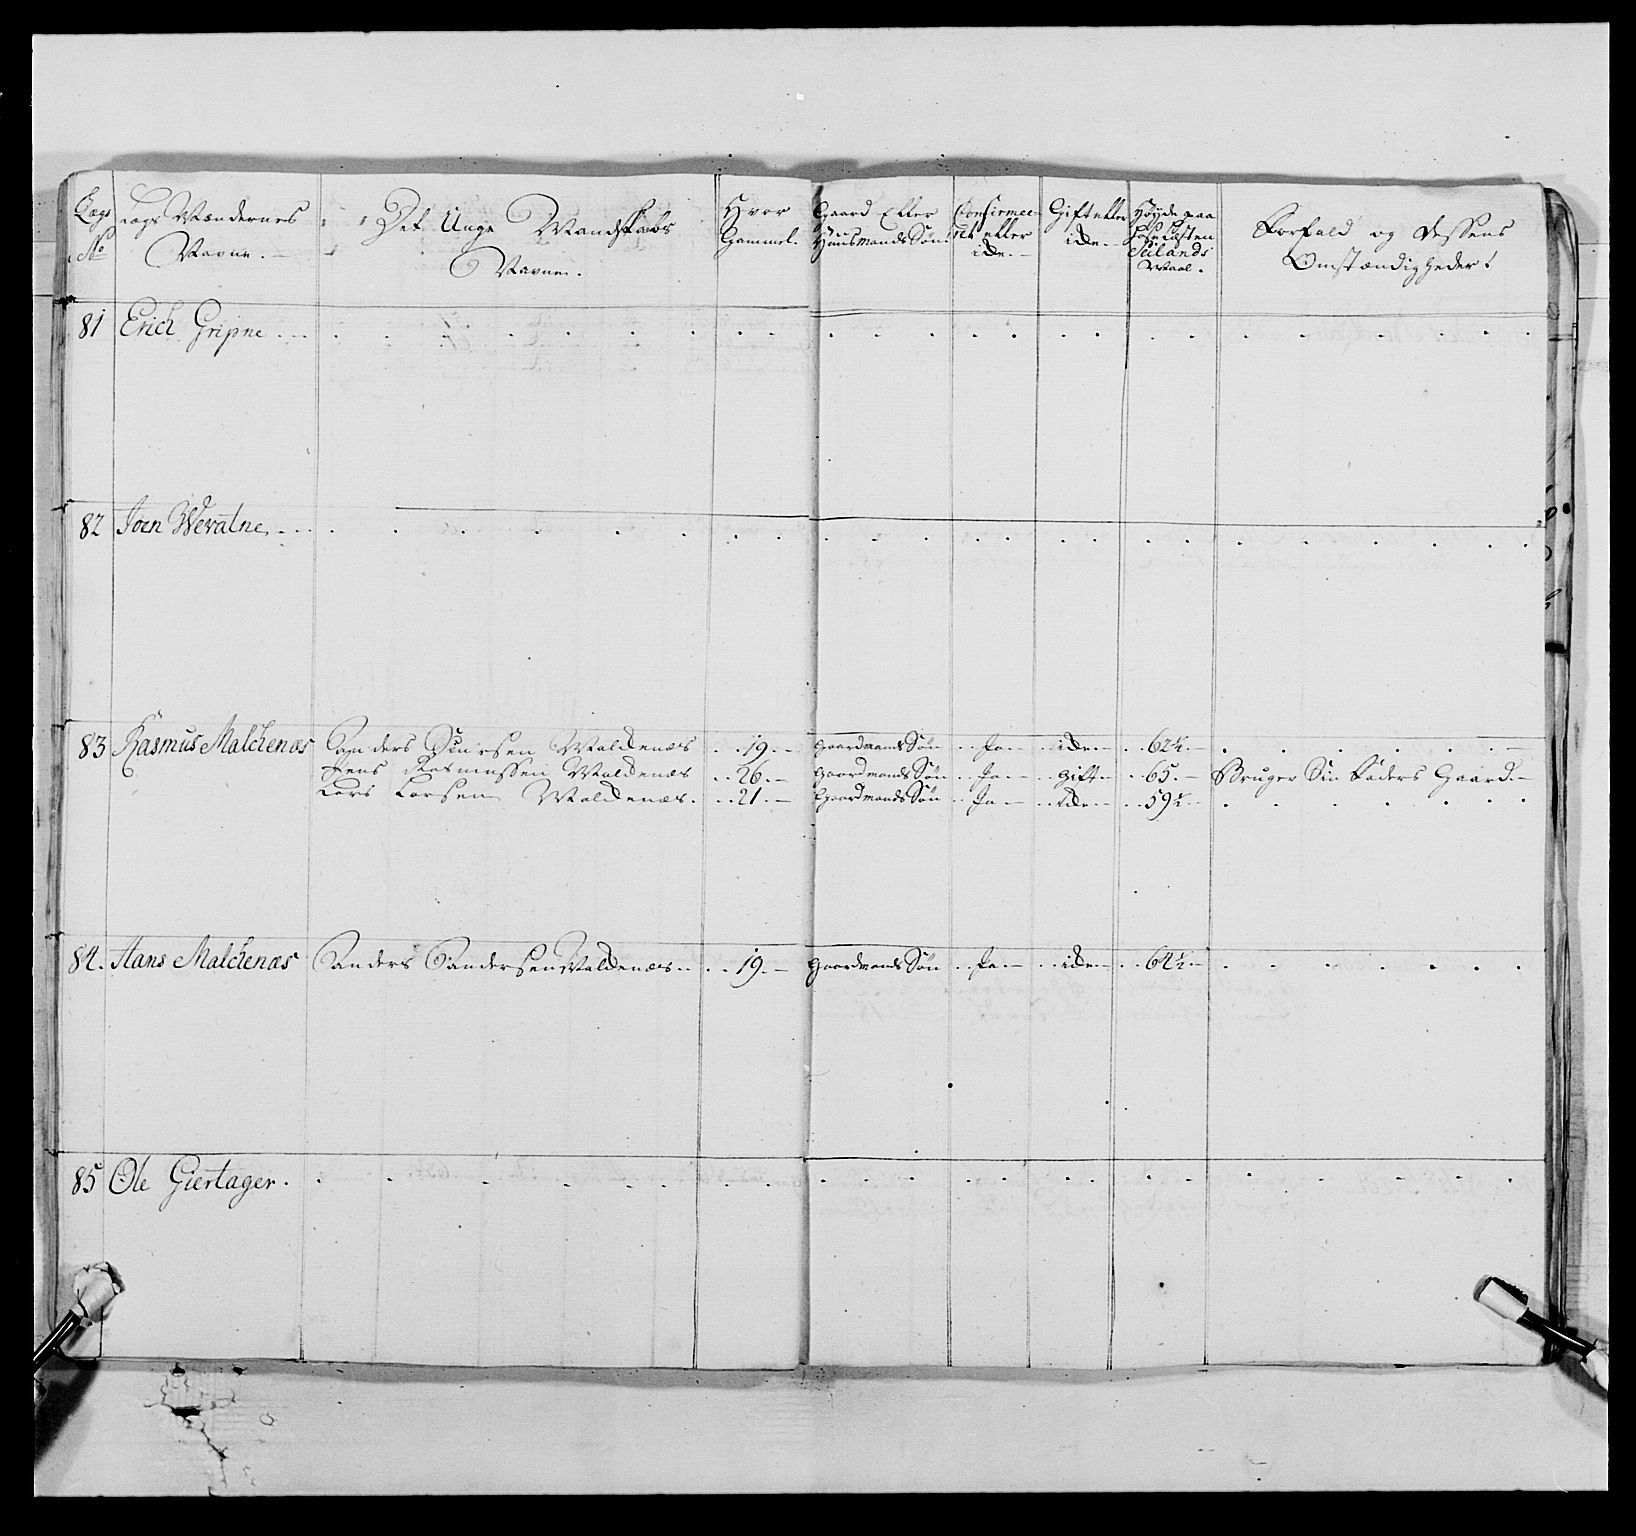 Lægs No | Lægs Mændernes Navne. | Det Unge Mandskabs Navne. | Hvor Gammel. | Gaard Eller Huusmands Søn. | Confirmeret eller icke. | Gift eller icke. | Høyde paa Siælands Maal. | Forfald og dessens Omstændigheder
81 Erich Gripne
82 Joen Weralne
83 Rasmus Malchenæs Siversen Maldenæs 19. Gaardmands Søn Ja icke 62½
Jens Rasmussen Maldenæs 26. Gaardmands Søn Ja gift 65. Bruger Sin Faders Gaard.
Lars Larsen Maldenæs. 21. Gaardmands Søn Ja icke 59½
84. Hans Malchenæs Anders Andersen Maldenæs 19. Gaardmands Søn Ja icke 64½
85 Ole Giertager.